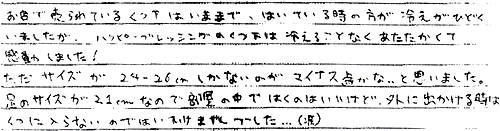 お店で売られているくつ下はいままで、はいている時の方が冷えがひどく
いましたが、ハッピーブレッシングのくつ下は冷えることなくあたたかくて
感動しました！
ただサイズが24-26cmしかないのがマイナス点かな…と思いました。
足のサイズが21cmなので部屋の中ではくのはいいけど、外に出かける時は
くつに入らないのではいけませんでした…(涙)